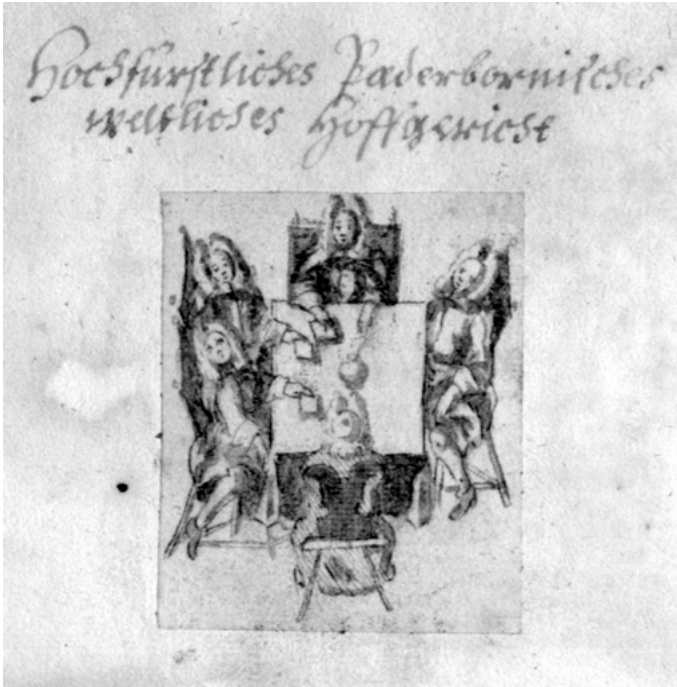 Hochfürstliches Paderbornisches
weltliches Hoffgericht